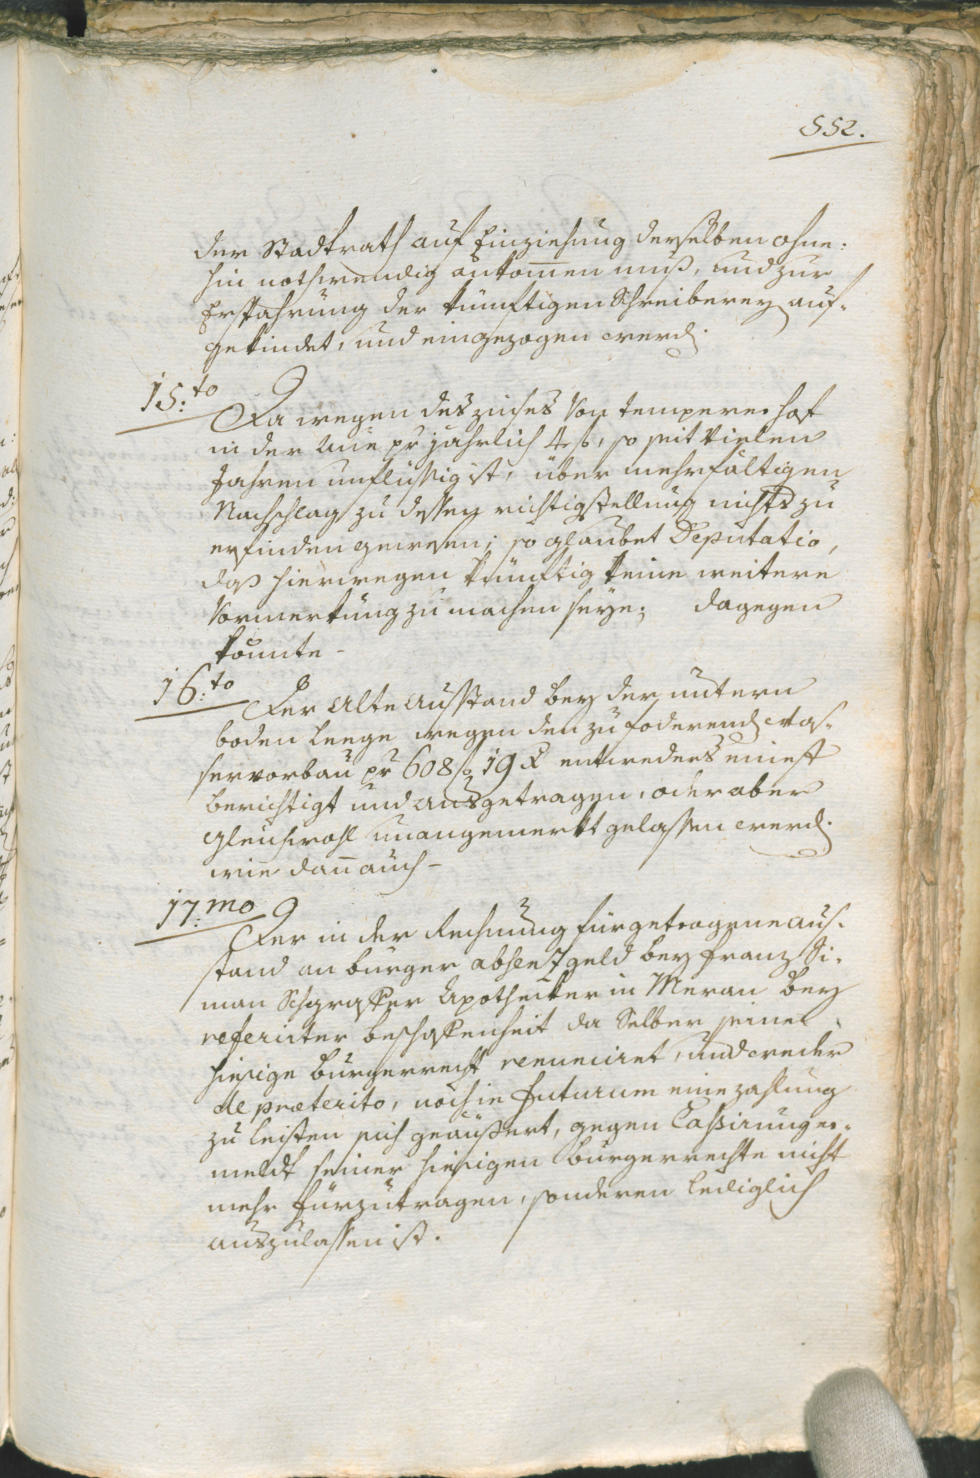 552.
der Stadtrath auf Einziehung derselben ohne:
hin nothwendig ankommen muß, und zur
Ersparung der künftigen Schreiberey auf-
gekindet, und eingezogen werd.
15:to Da wegen des zinses von temperer hof
in der Aue pr jährlich 4 f, so seit vielen
Jahren unflüssig ist, über mehrfältigen
Nachschlag zu dessen richtigstellung nichts zu
erfinden gewesen; so glaubet Deputatio,
daß hierwegen künftig keine weitere
Vormerkung zu machen seye; dagegen
könnte -
16:to Der Alte Ausstand bey der untern
boden leege wegen den zu foderend Was-
servorbau pr 608 f 19 x entweders einest
berichtigt und ausgetragen, oder aber
gleichwohl unangemerkt gelassen werd.
wie dann auch -
17:mo Der in der Rechnung fürgetragene aus-
stand an burger absent geld bey Franz Si-
man Apotheker in Meran bey
referirter beschaffenheit da Selber seiner
hiesige burgerrecht renunciret, und weder
de præterito, noch in futurum eine zahlung
zu leisten sich geäußert, gegen Cassirung er-
meldt seiner hiesigen burgerrechte nicht
mehr fürzutragen, sonderen lediglich
auszulassen ist.